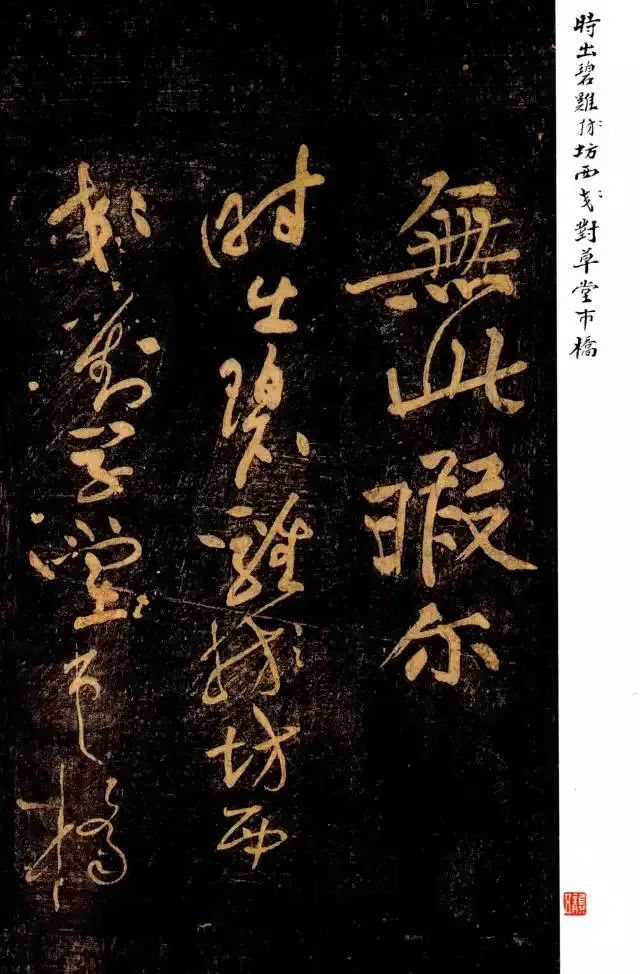 時出碧雞坊西對草堂市橋
無此暇尔
时出碧雞坊西
對草堂市橋